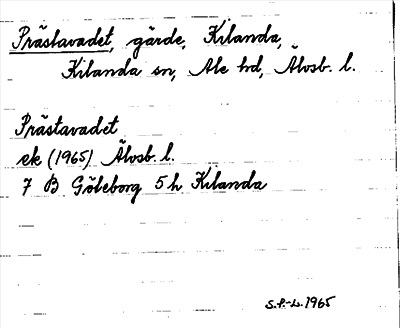 Prästavadet, gärde, Kilanda,
Kilanda sn, Ale hd, Älvsb. l.
Prästavadet
ek (1965) Älvsb. l.
7 B Göteborg 5 h Kilanda
S.P.-L. 1965